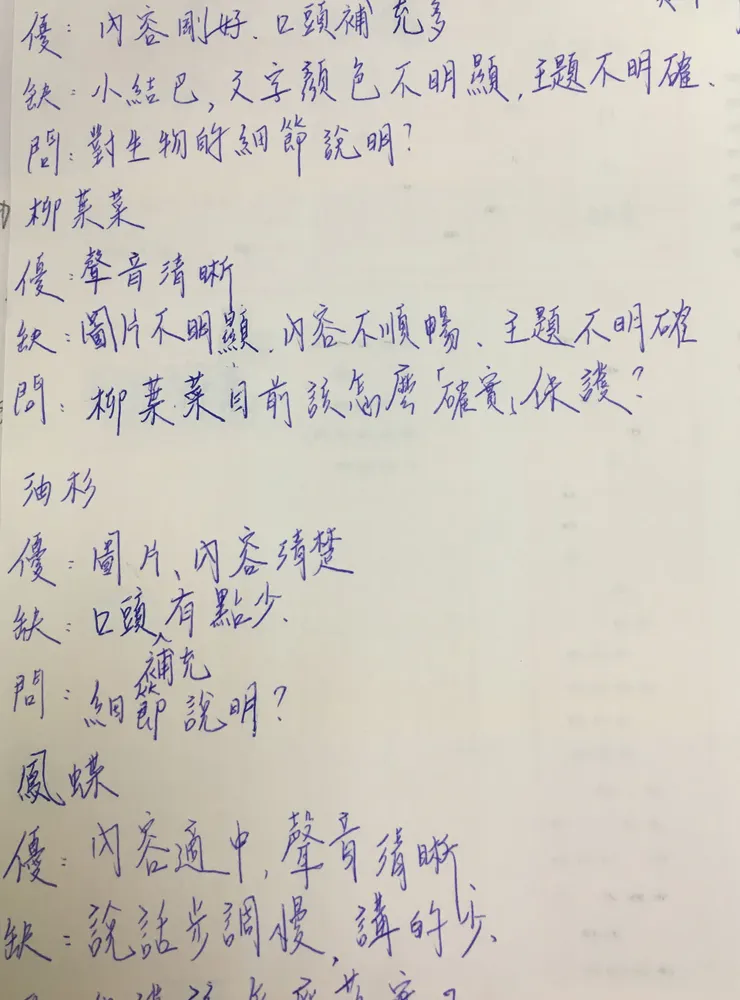 優：內容剛好、口頭補充多
缺：小結巴，文字顏色不明顯，主題不明確。
問：對生物的細節說明？
柳葉菜
優：聲音清晰
缺：圖片不明顯、內容不順暢、主題不明確
問：柳葉菜目前該怎麼「確實」保護？
油杉
優：圖片、內容清楚
缺：口頭補充有點少。
問：細節說明？
鳳蝶
優：內容適中，聲音清晰
缺：說話步調慢，講的少。